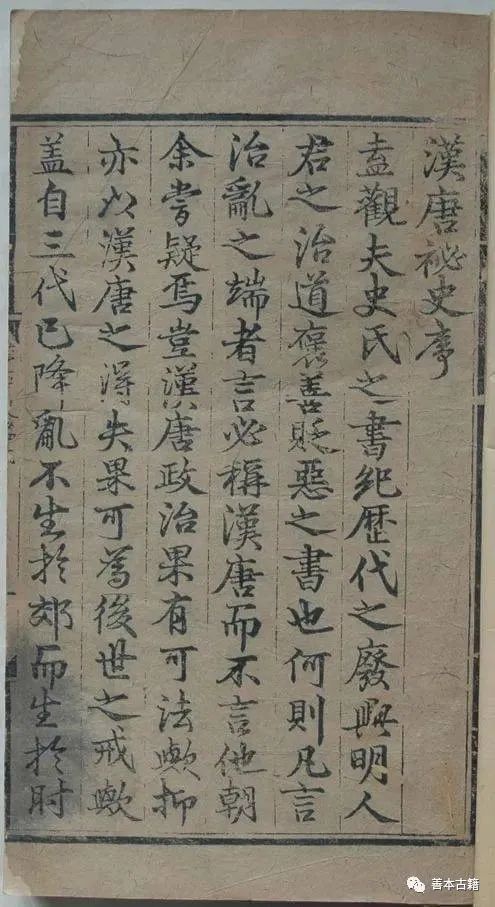 漢唐祕史序
盖觀夫史氏之書紀歷代之廢興明人
君之治道褒善貶惡之書也何則凡言
治亂之端者言必稱漢唐而不言他朝
余嘗疑焉豈漢唐政治果有可法歟抑
亦以漢唐之得失果可為後世之戒歟
盖自三代已降亂不生於郊而生於肘
善本古籍